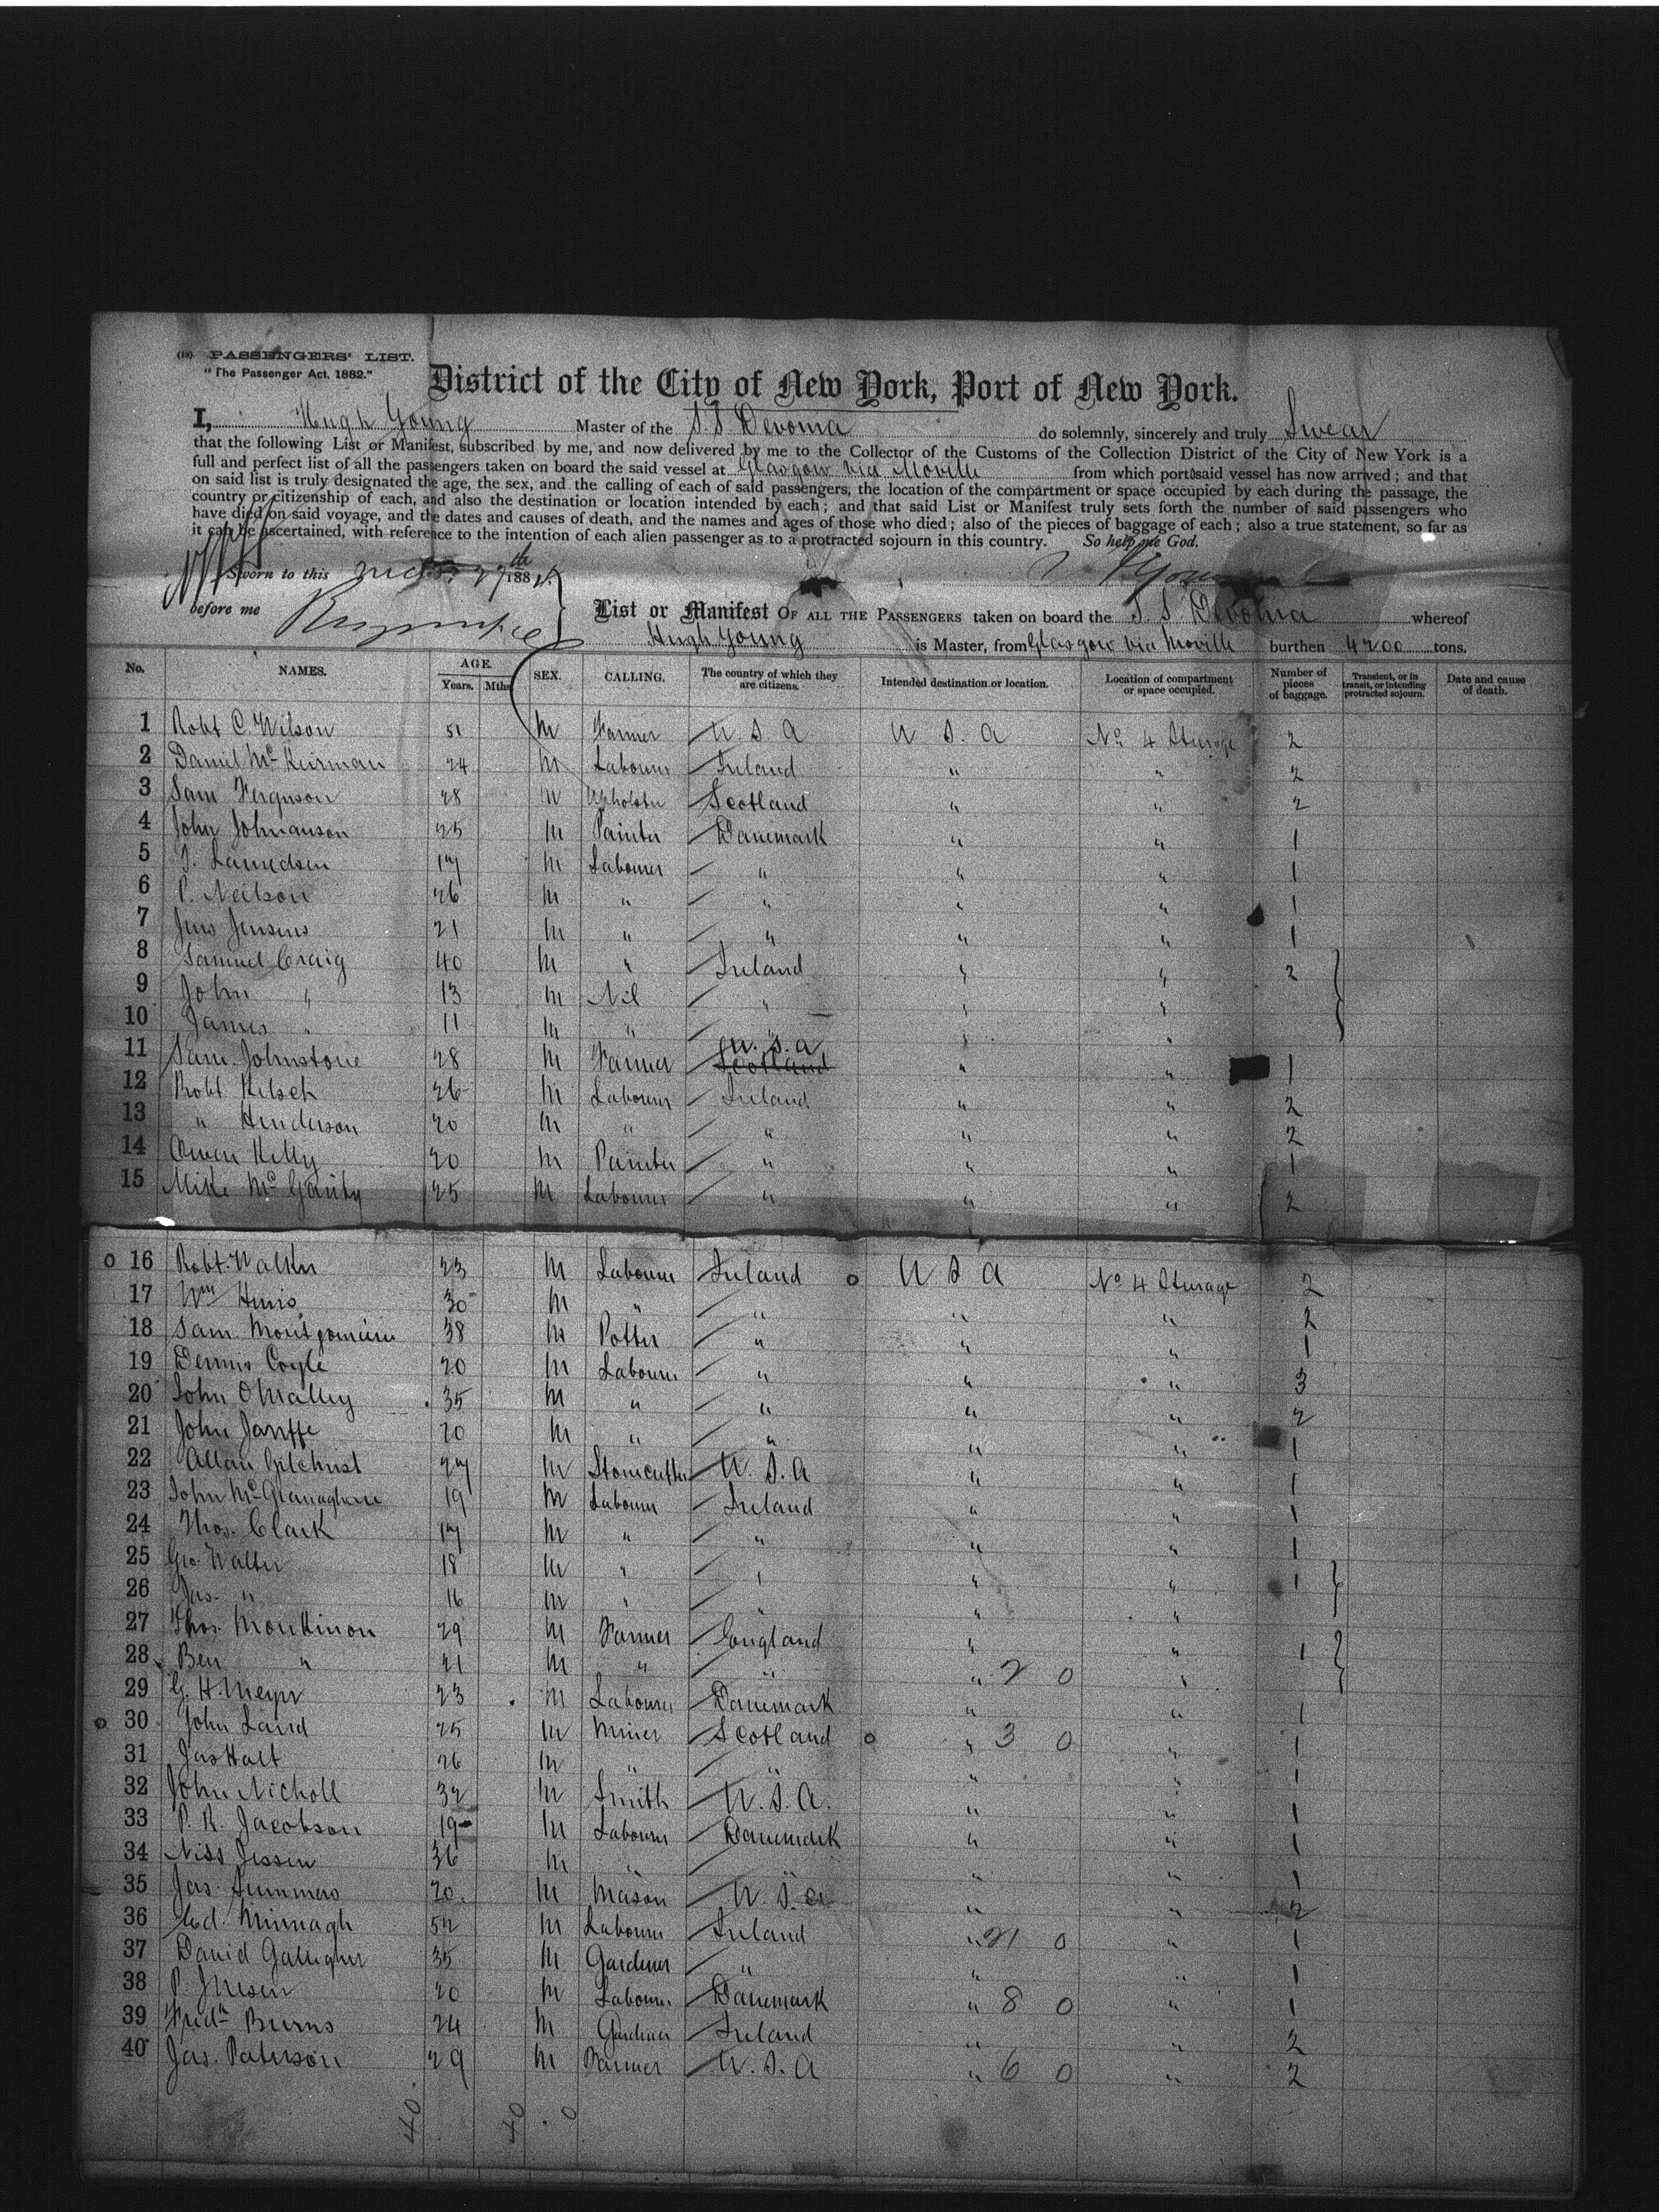 (18) PASSENGERS' LIST.
"The Passenger Act, 1882."
District of the City of New York, Port of New York.
I, Hugh Young Master of the S.S. Devonia do solemnly, sincerely and truly Swear
that the following List or Manifest, subscribed by me, and now delivered by me to the Collector of the Customs of the Collection District of the City of New York is a
full and perfect list of all the passengers taken on board the said vessel at Glasgow via Moville from which port said vessel has now arrived; and that
on said list is truly designated the age, the sex, and the calling of each of said passengers, the location of the compartment or space occupied by each during the passage, the
country or citizenship of each, and also the destination or location intended by each; and that said List or Manifest truly sets forth the number of said passengers who
have died on said voyage, and the dates and causes of death, and the names and ages of those who died; also of the pieces of baggage of each; also a true statement, so far as
it can be ascertained, with reference to the intention of each alien passenger as to a protracted sojourn in this country. So help me God.
Sworn to this 27th 188
H Young
before me
List or Manifest OF ALL THE PASSENGERS taken on board the S.S. Devonia whereof
Hugh Young is Master, from Glasgow via Moville burthen 4200 tons.
No. NAMES. AGE. Years. Mths. SEX. CALLING. The country of which they are citizens. Intended destination or location. Location of compartment or space occupied. Number of pieces of baggage. Transient, or in transit, or intending protracted sojourn. Date and cause of death.
1 Robt C. Wilson 51 M Farmer U.S.A U S. A No 4 Sturage 2
2 Daniel Mc Keirnan 24 M Labourer Ireland " " 2
3 Sam Ferguson 28 M Upholster Scotland " " 2
4 John Johnanson 25 M Painter Danemark " " 1
5 17 M Labourer " " " 1
6 P. Neilson 26 M " " " " 1
7 Jens Jensens 21 M " " " " 1
8 Samuel Craig 40 M " Ireland " " 2
9 John " 13 M Nil " " "
10 James " 11 M " " " "
11 Sam. Johnstone 28 M Farmer U.S.A Scotland " " 1
12 Robt 26 M Labourer Ireland " " 2
13 " Henderson 20 M " " " " 2
14 Owen Kelly 20 M Painter " " " 1
15 Mike Mc Garity 25 M Labourer " " " 2
16 Robt. Walker 23 M Labourer Ireland U S A No 4 Sturage 2
17 Wm 30 M " " " " 2
18 Sam. Montgomery 38 M Potter " " " 1
19 Dennis Coyle 20 M Labourer " " " 3
20 John OMalley 35 M " " " " 2
21 John 20 M " " " " 1
22 Allan Gilchrist 27 M Stonecutter U.S.A " " 1
23 John Mc Glanaghan 19 M Labourer Ireland " " 1
24 Thos. Clark 17 M " " " " 1
25 Geo. Walter 18 M " " " " 1
26 Jas. " 16 M " " " "
27 Thos. Monkinon 29 M Farmer England " " 1
28 Ben " 21 M " " " 2 0 "
29 G. H. Meyer 23 M Labourer Danemark " " 1
30 John Laird 25 M Miner Scotland " 3 0 " 1
31 Jas Halt 26 M " " " " 1
32 John Nicholl 32 M Smith U.S.A. " " 1
33 P. R. Jacobson 19 M Labourer Danemark " " 1
34 Niss Jessen 36 M " " " 1
35 Jas. Summers 20 M Mason U.S.A " " 2
36 Ed. Minnagh 52 M Labourer Ireland " 21 0 " 1
37 David Gallagher 35 M Gardener " " " 1
38 P. 20 M Labourer Danemark " 8 0 " 1
39 Fredk Burns 24 M Gardiner Ireland " " 2
40 Jas. Paterson 29 M Farmer U.S.A " 6 0 " 2
40 40 0